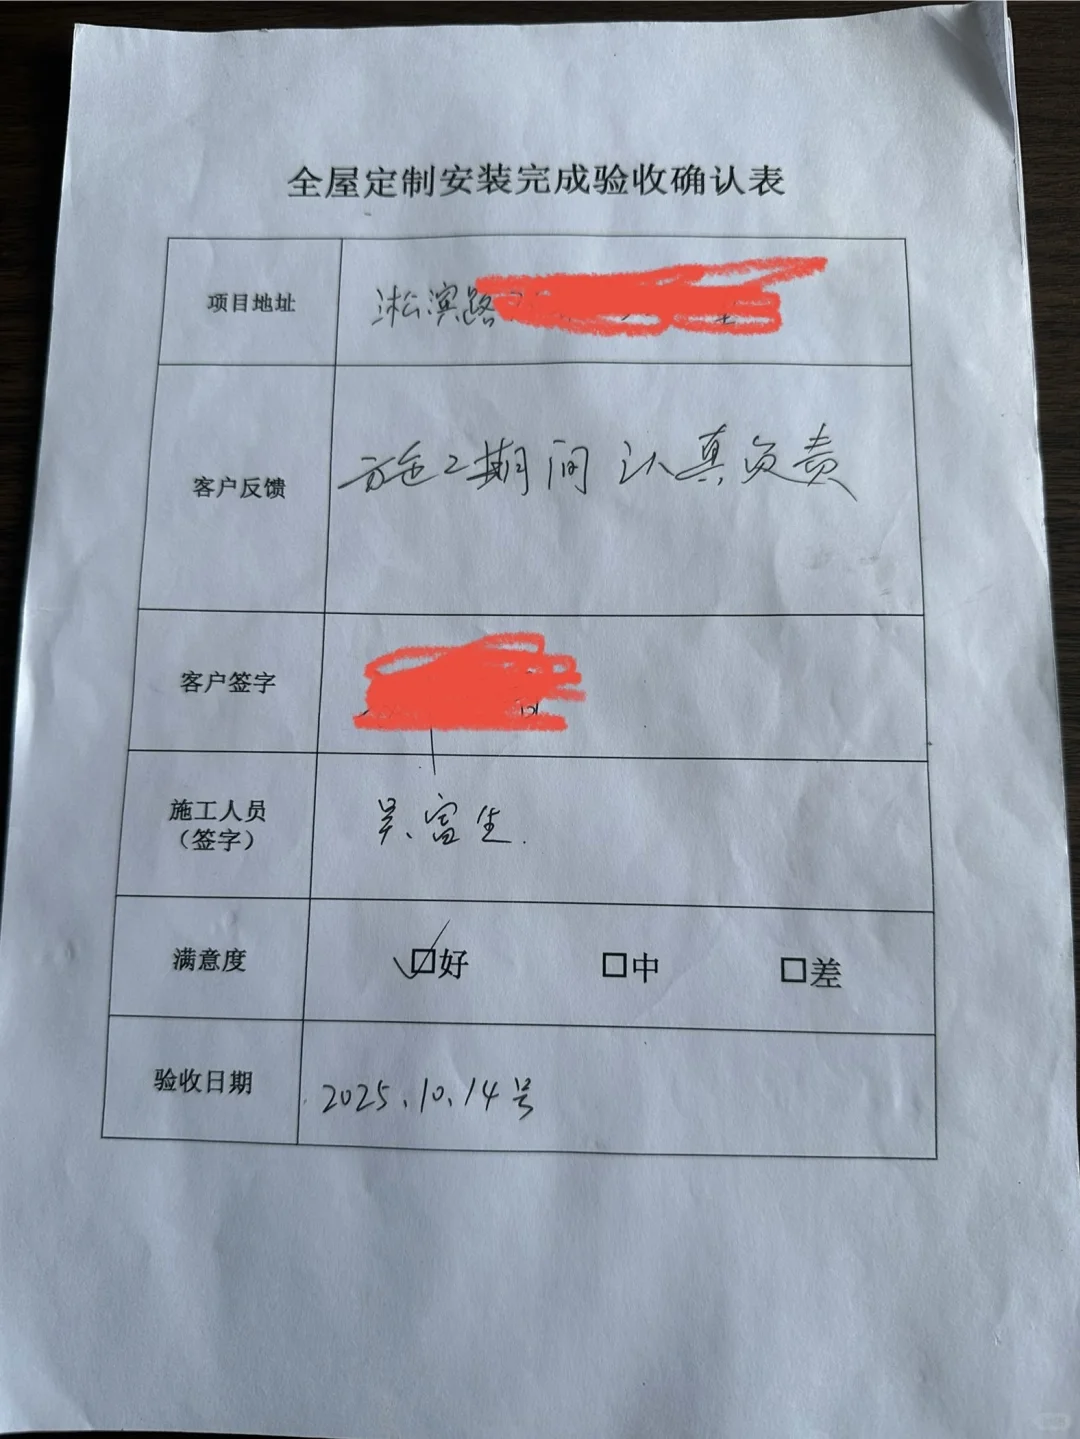 全屋定制安装完成验收确认表
项目地址 淞滨路
客户反馈 施工期间认真负责
客户签字
施工人员
(签字) 吴富生.
满意度 ☑好 □中 □差
验收日期 2025.10.14号